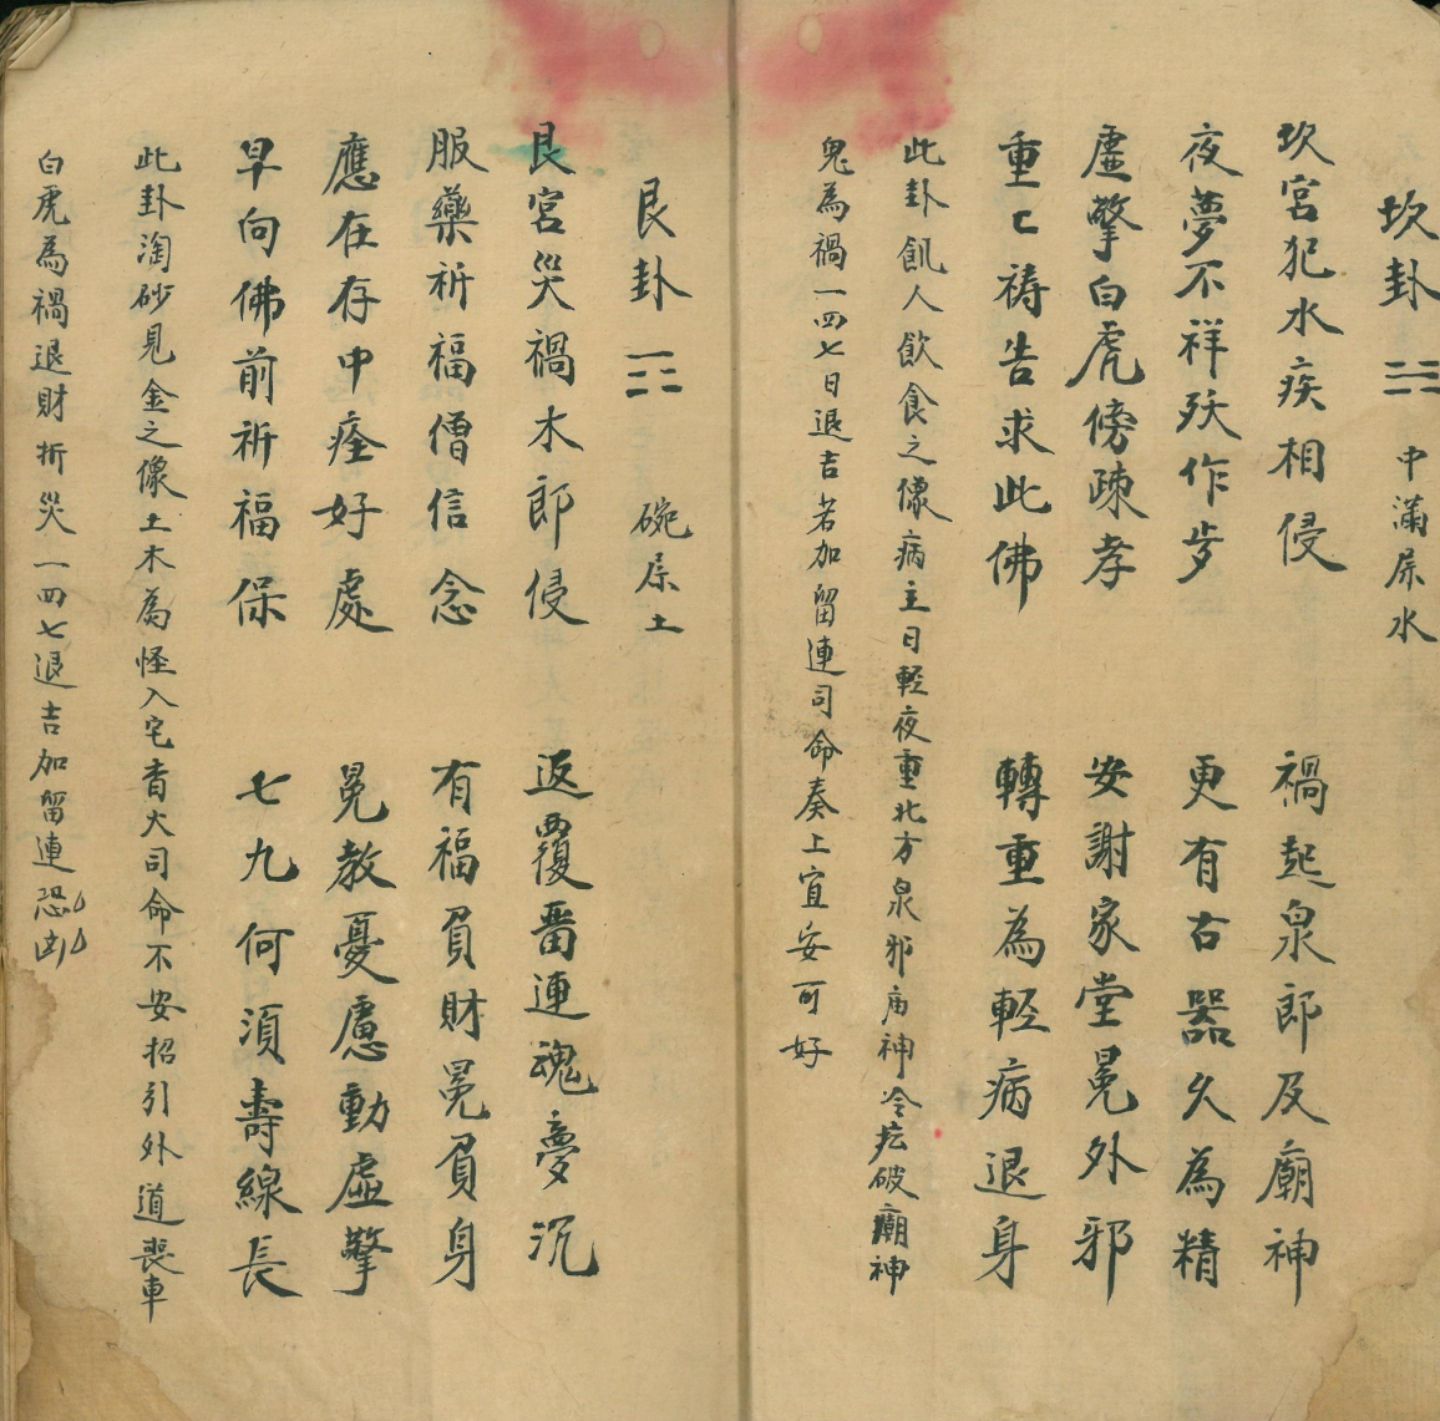 坎卦 ☵ 中滿屎水
坎宮犯水疾相侵 禍起泉郎及廟神
夜夢不祥殀作歩 更有古器久為精
虛驚白虎傍疎孝 安謝家堂冕外邪
重〻禱告求此佛 轉重為輕病退身
此卦飢人飲食之像病主日輕夜重北方泉邪庙神冷坛破廟神
鬼為禍一四七日退吉若加留連司命奏上宜安可好
艮卦 ☶ 碗屎土
艮宮災禍木郎侵 返覆畨連魂夢沉
服藥祈福僧信念 有福負財冕負身
應在存中痊好處 冕教憂慮動虛擎
早向佛前祈福保 七九何須壽線長
此卦淘砂見金之像土木為怪入宅香火司命不安招引外道喪車
白虎為禍退財折災一四七退吉加留連恐凶